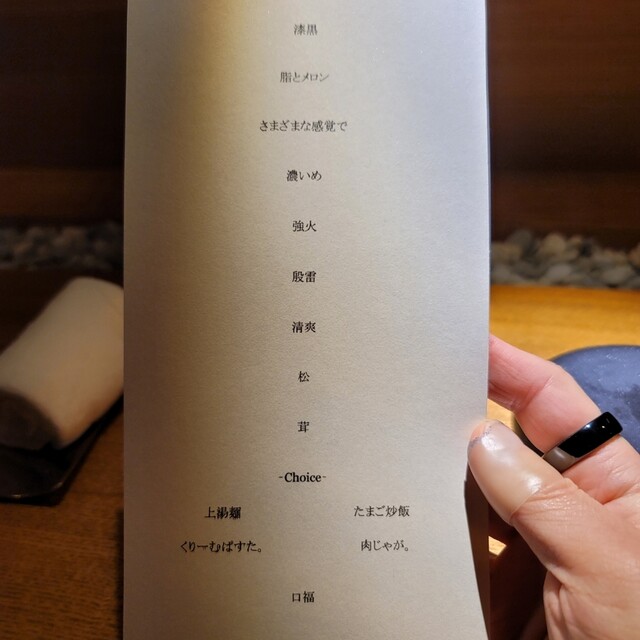 漆黒
脂とメロン
さまざまな感覚で
濃いめ
強火
殷雷
清爽
松
茸
-Choice-
上湯麺 たまご炒飯
くりーむぱすた。 肉じゃが。
口福